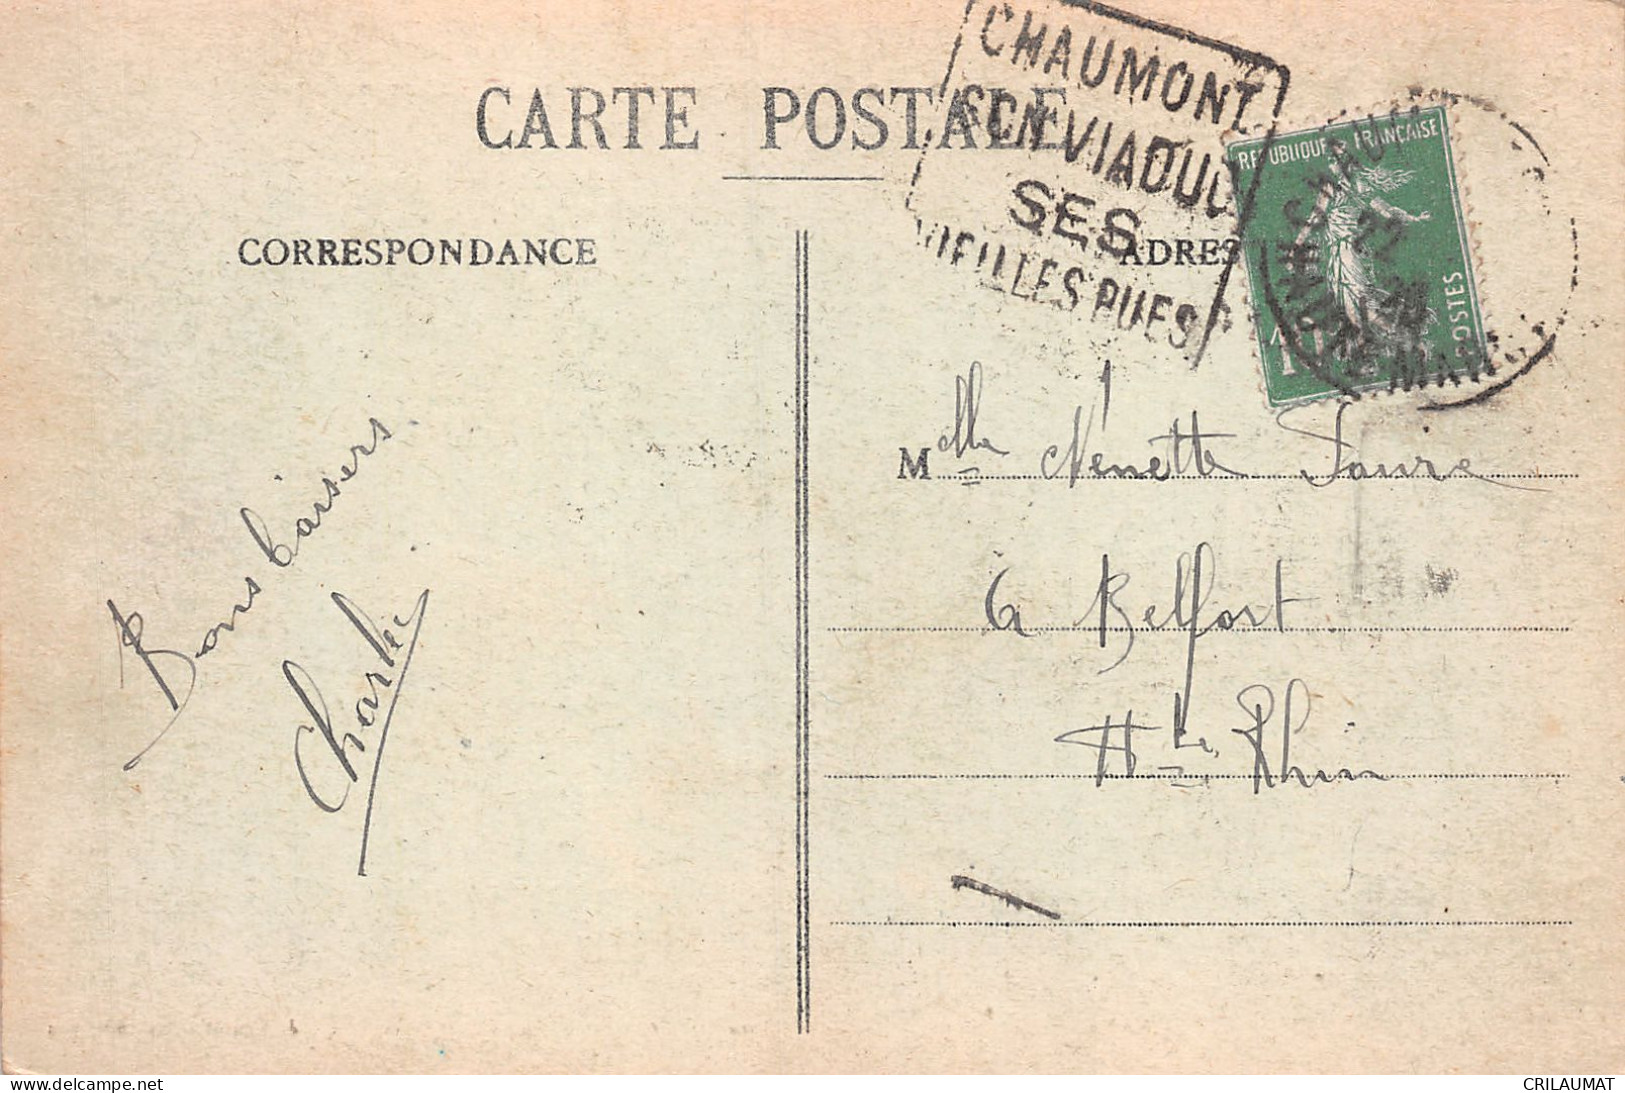 CARTE POSTALE
CHAUMONT
SON VIADUC
SES
VIEILLES RUES
REPUBLIQUE FRANÇAISE
POSTES
10
CORRESPONDANCE
ADRES
Bons baisers
Charlie
Melle Nénette Faure
à Belfort
Hte Rhin
www.delcampe.net
CRILAUMAT